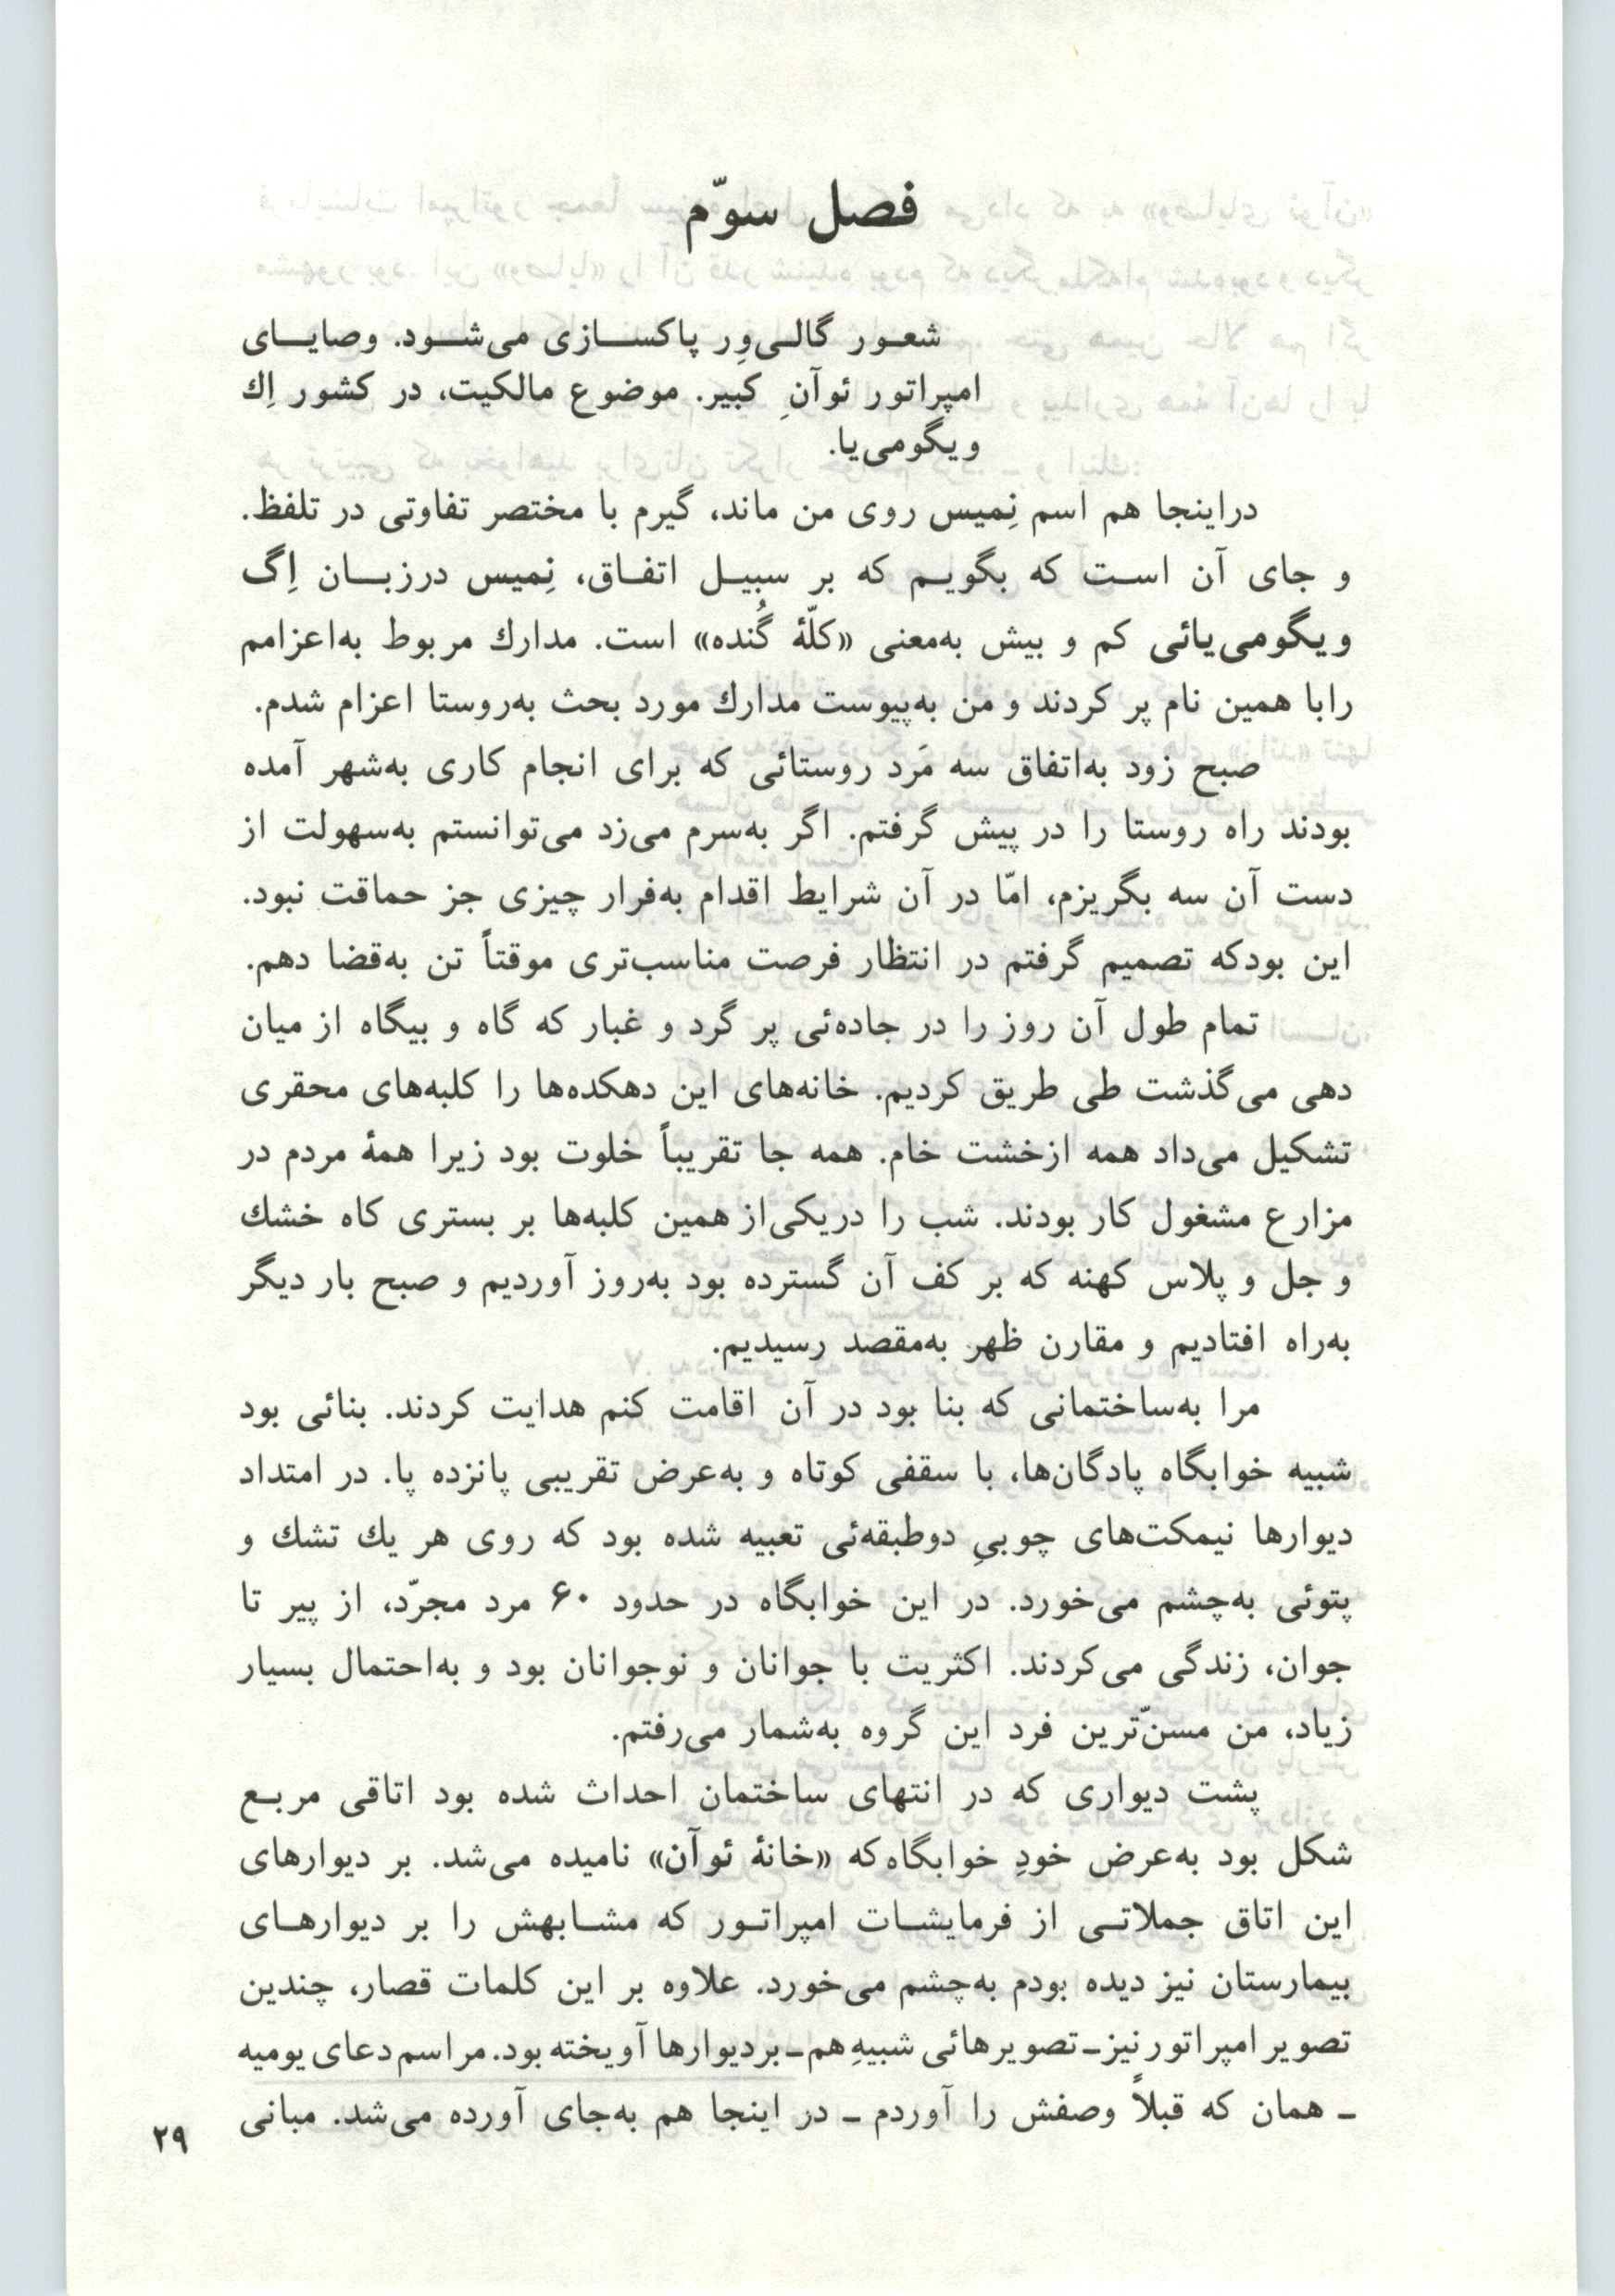 فصل سوّم
شعور گالی‌وِر پاکسازی می‌شود. وصایای
امپراتور ئوآنِ کبیر. موضوع مالکیت، در کشور اِك
ویگومی‌یا.
دراینجا هم اسم نِمیس روی من ماند، گیرم با مختصر تفاوتی در تلفظ.
و جای آن است که بگویم که بر سبیل اتفاق، نِمیس درزبان اِگ
ویگومی‌یائی کم و بیش به‌معنی «کلّهٔ گُنده» است. مدارك مربوط به‌اعزامم
رابا همین نام پر کردند و من به‌پیوست مدارك مورد بحث به‌روستا اعزام شدم.
صبح زود به‌اتفاق سه مَرد روستائی که برای انجام کاری به‌شهر آمده
بودند راه روستا را در پیش گرفتم. اگر به‌سرم می‌زد می‌توانستم به‌سهولت از
دست آن سه بگریزم، امّا در آن شرایط اقدام به‌فرار چیزی جز حماقت نبود.
این بودکه تصمیم گرفتم در انتظار فرصت مناسب‌تری موقتاً تن به‌قضا دهم.
تمام طول آن روز را در جاده‌ئی پر گرد و غبار که گاه و بیگاه از میان
دهی می‌گذشت طی طریق کردیم. خانه‌های این دهکده‌ها را کلبه‌های محقری
تشکیل می‌داد همه ازخشت خام. همه جا تقریباً خلوت بود زیرا همهٔ مردم در
مزارع مشغول کار بودند. شب را دریکی‌از همین کلبه‌ها بر بستری کاه خشك
و جل و پلاس کهنه که بر کف آن گسترده بود به‌روز آوردیم و صبح بار دیگر
به‌راه افتادیم و مقارن ظهر به‌مقصد رسیدیم.
مرا به‌ساختمانی که بنا بود در آن اقامت کنم هدایت کردند. بنائی بود
شبیه خوابگاه پادگان‌ها، با سقفی کوتاه و به‌عرض تقریبی پانزده پا. در امتداد
دیوارها نیمکت‌های چوبیِ دوطبقه‌ئی تعبیه شده بود که روی هر یك تشك و
پتوئی به‌چشم می‌خورد. در این خوابگاه در حدود ۶۰ مرد مجرّد، از پیر تا
جوان، زندگی می‌کردند. اکثریت با جوانان و نوجوانان بود و به‌احتمال بسیار
زیاد، من مسنّ‌ترین فرد این گروه به‌شمار می‌رفتم.
پشت دیواری که در انتهای ساختمان احداث شده بود اتاقی مربع
شکل بود به‌عرض خودِ خوابگاه‌که «خانهٔ ئوآن» نامیده می‌شد. بر دیوارهای
این اتاق جملاتی از فرمایشات امپراتور که مشابهش را بر دیوارهای
بیمارستان نیز دیده بودم به‌چشم می‌خورد. علاوه بر این کلمات قصار، چندین
تصویر امپراتور نیزـ تصویرهائی شبیهِ هم ـ بردیوارها آویخته بود. مراسم دعای یومیه
ـ همان که قبلاً وصفش را آوردم ـ در اینجا هم به‌جای آورده می‌شد. مبانی
۲۹